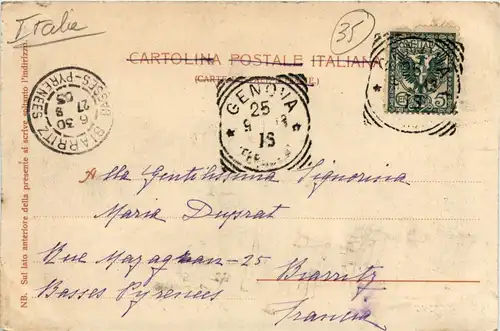 Italie
35
CARTOLINA POSTALE ITALIANA
(CARTE
GENOVA
25
9
1S
BIARRITZ
BASSES-PYRENEES
6 30
27
9
03
5
NB. Sul lato anteriore della presente si scrive soltanto l'indirizzo.
Alla Gentilissima Signorina
Maria Duprat
Rue Mazagran-25
Biarritz
Basses Pyrenèes
Francia